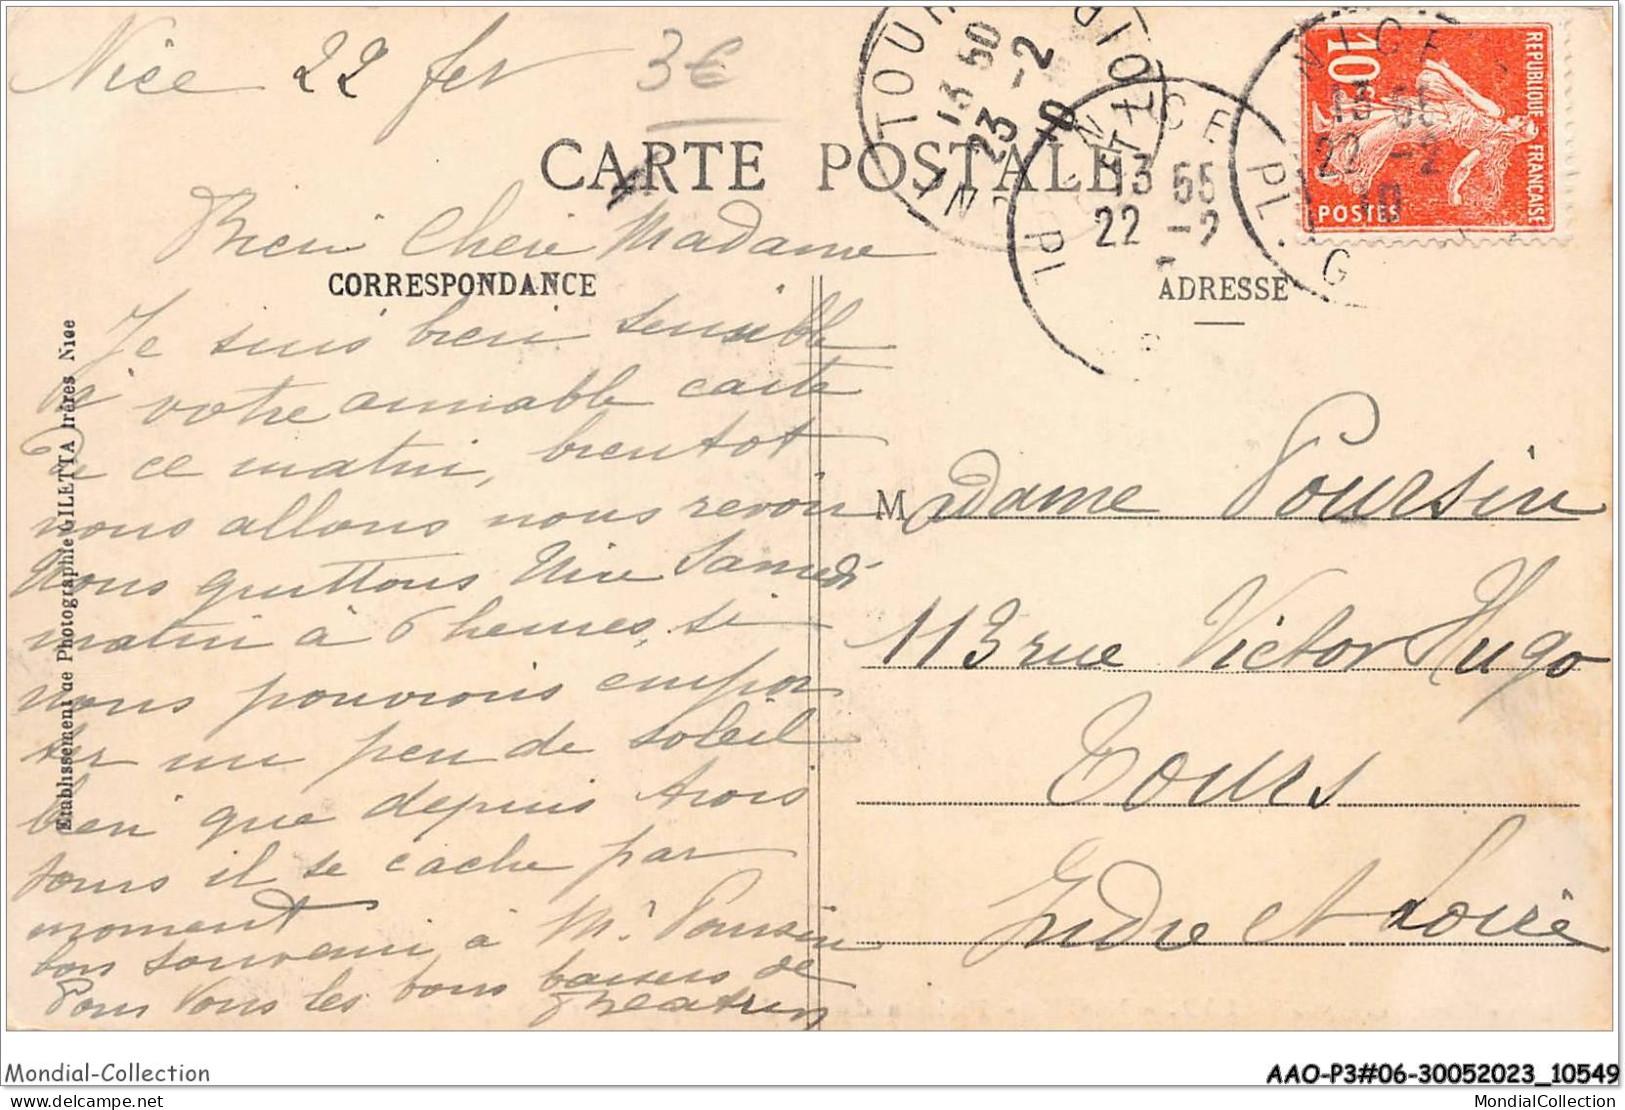 Nice 22 fev
3€
CARTE POSTALE
Bien Chere Madame
CORRESPONDANCE
Je suis bien sensible
à votre aimable carte
de ce matin, bientot
nous allons nous revoir
Nous quittons Nice Samedi
matin à 6 heures, si
nous pouvions empor
ter un peu de soleil
bien que depuis trois
jours il se cache par
moment
bon souvenir à Mr Poursin
Pour Vous les bons baisers de
Beatrix
Etablissement de Photographie GILETTA frères Nice
TOURS
13 50
23 -2
10
INDRE-ET-LOIRE
NICE
13 55
22 -2
NICE
PL. G
13 55
22 -2
10
REPUBLIQUE FRANÇAISE
10c
POSTES
ADRESSE
Madame Poursin
113 rue Victor Hugo
Tours
Indre et Loire
Mondial-Collection
AAO-P3#06-30052023_10549
www.delcampe.net
MondialCollection